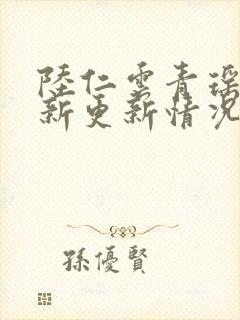 陸仁雲青瑤
新更新情況
孫優賢